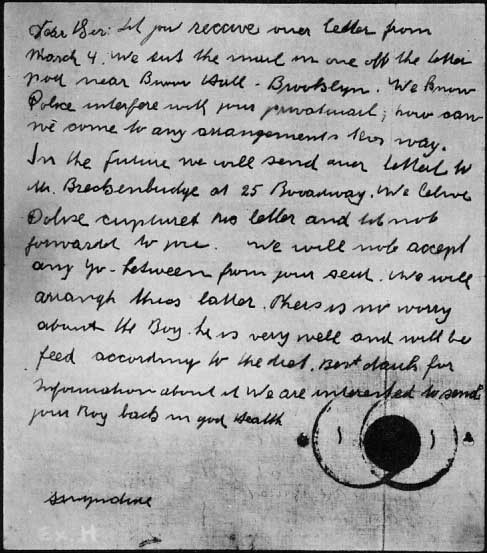 Dear Sir: Did you receive ouer letter from
March 4. We sent the mail in one off the letter
near Burro Hall - Brooklyn. We know
Police interfere with your privatmail; how can
we come to any arrangements this way.
In the future we will send ouer letters to
Mr. Breckenbridge at 25 Broadway. We
Police captuered letter and not
forwarded to you. We will not accept
any go-between from your sent. We will
arrangh latter. There is no worry
about the Boy. he is very well and will be
feed according to the diet. Best dank for
Information about it. We are interested to send
your Boy back in god Health
EX. H